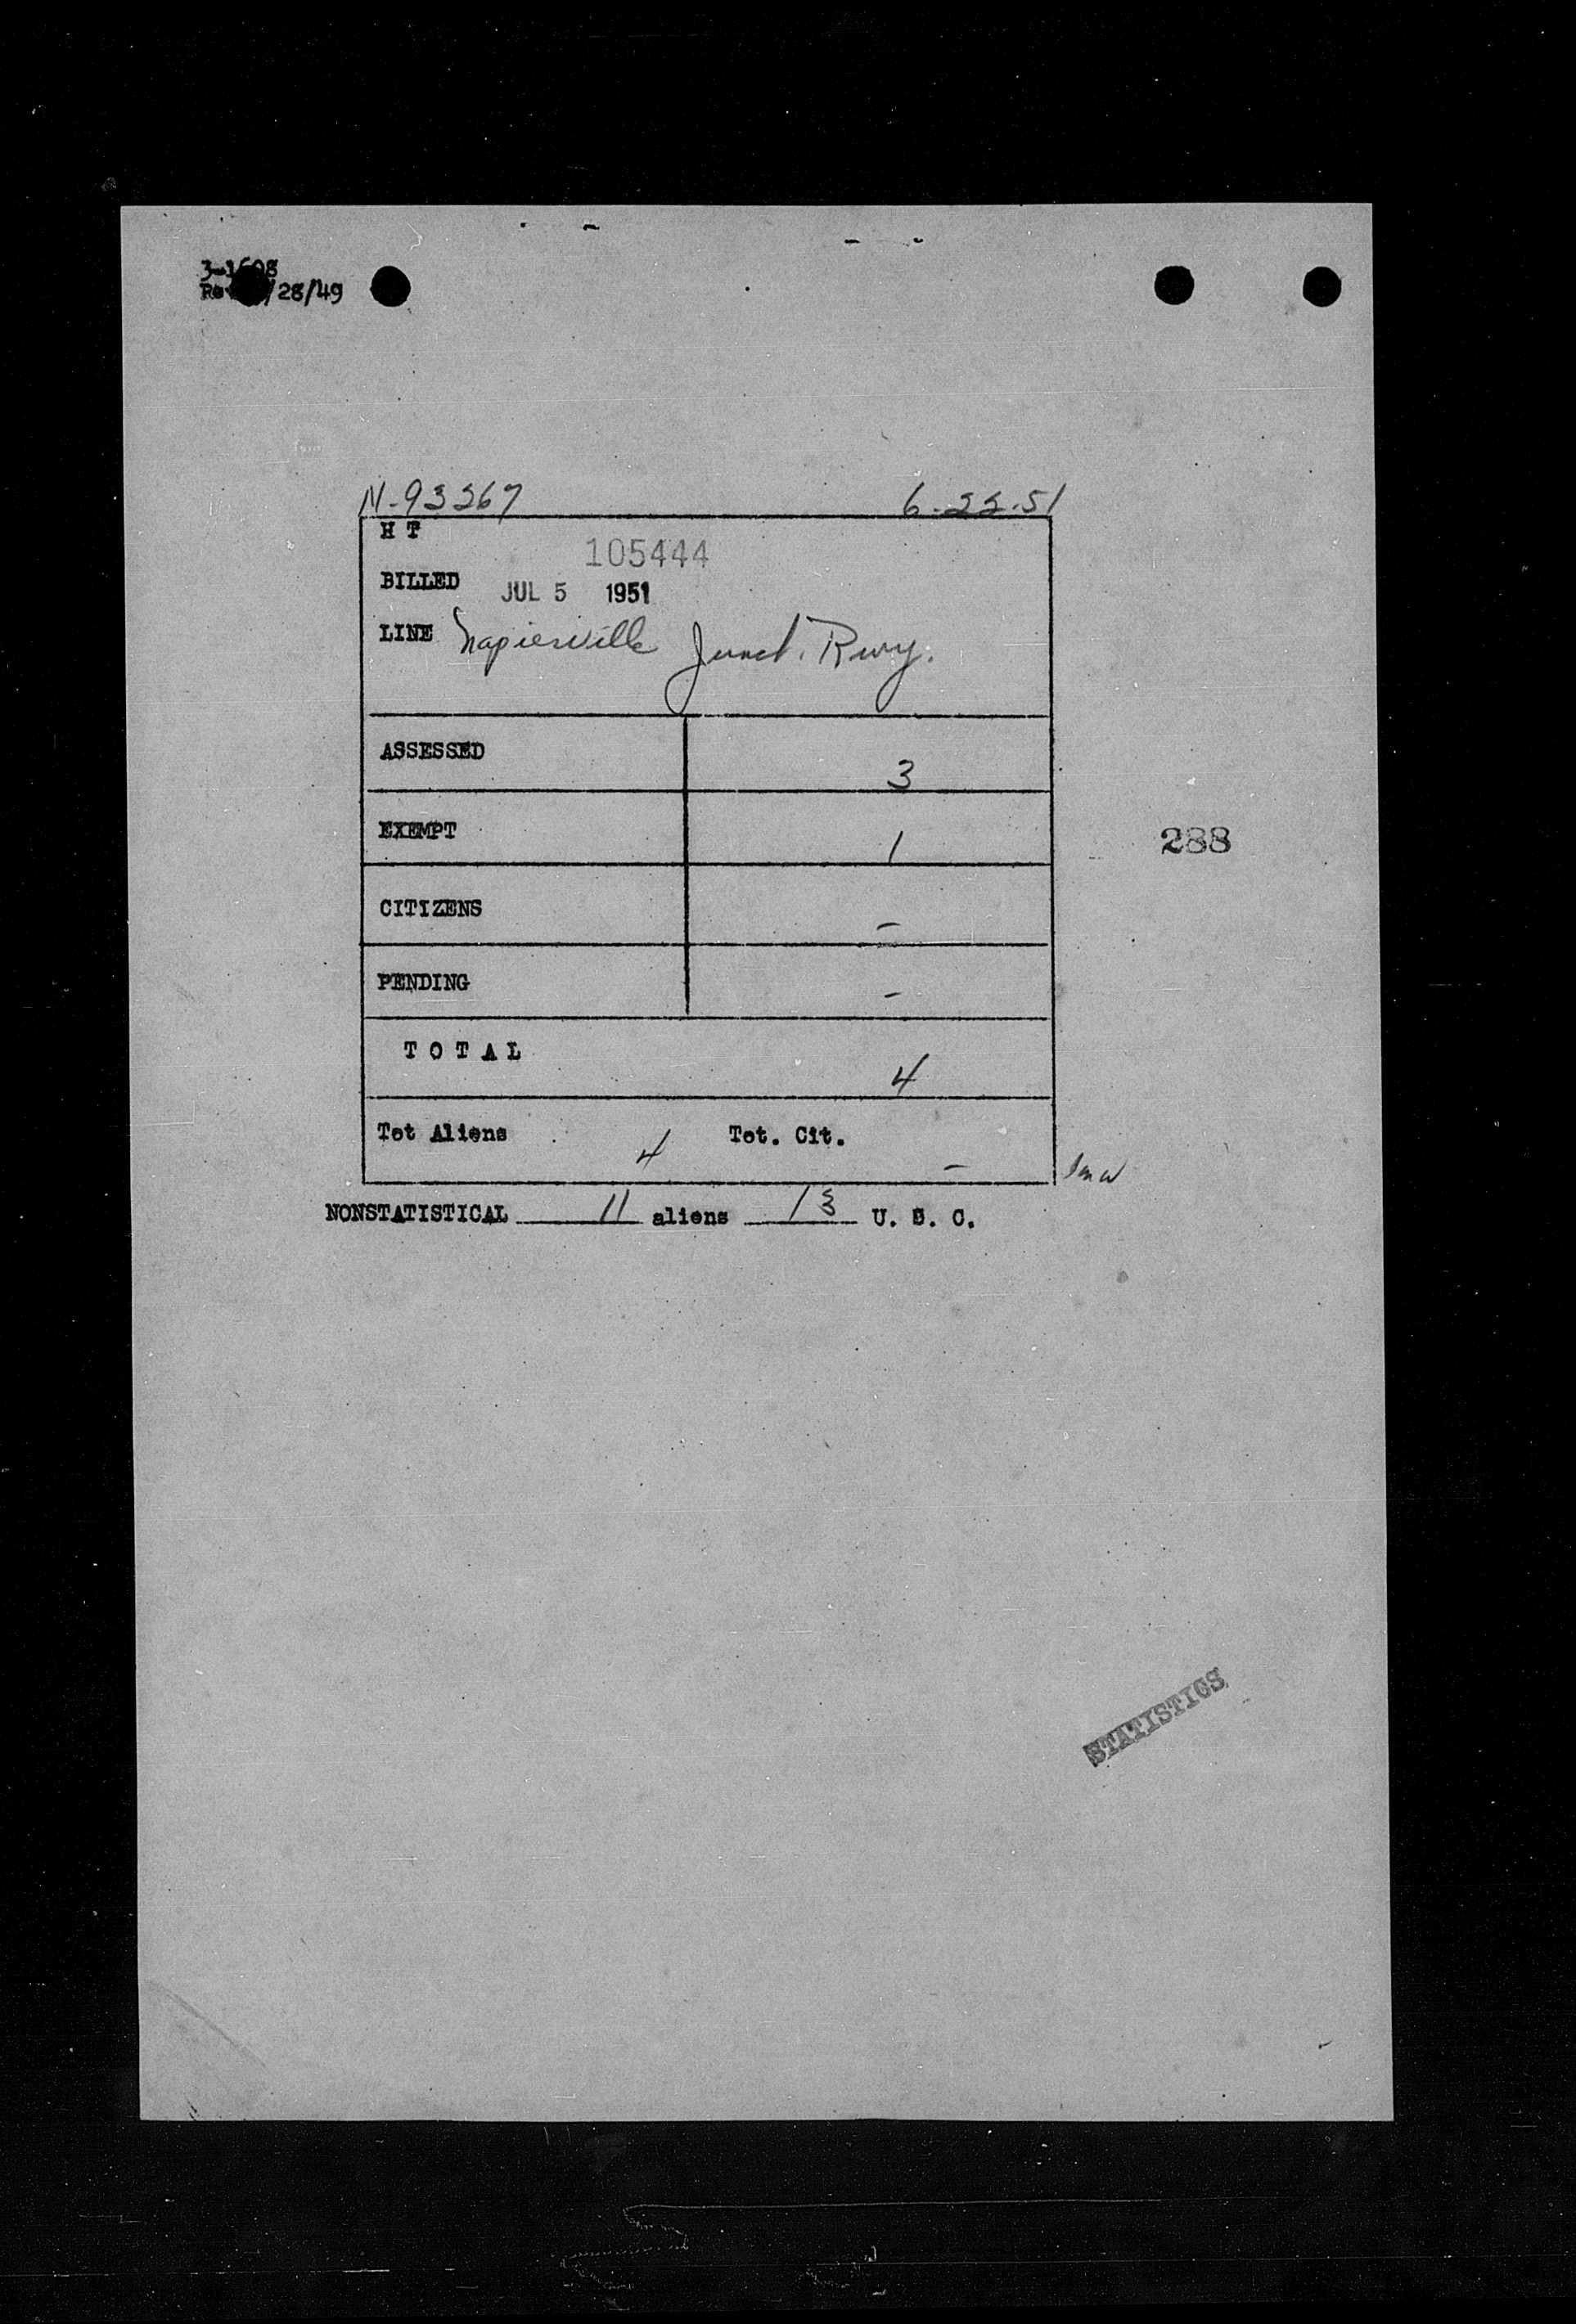 3-1608
/28/49
N-93267 6-22-51
H T
105444
BILLED JUL 5 1951
LINE Napierville Junct. Rwy.
ASSESSED 3
EXEMPT 1
288
CITIZENS –
PENDING –
T O T A L 4
Tot Aliens 4 Tot. Cit. –
NONSTATISTICAL 11 aliens 13 U. S. C.
STATISTICS